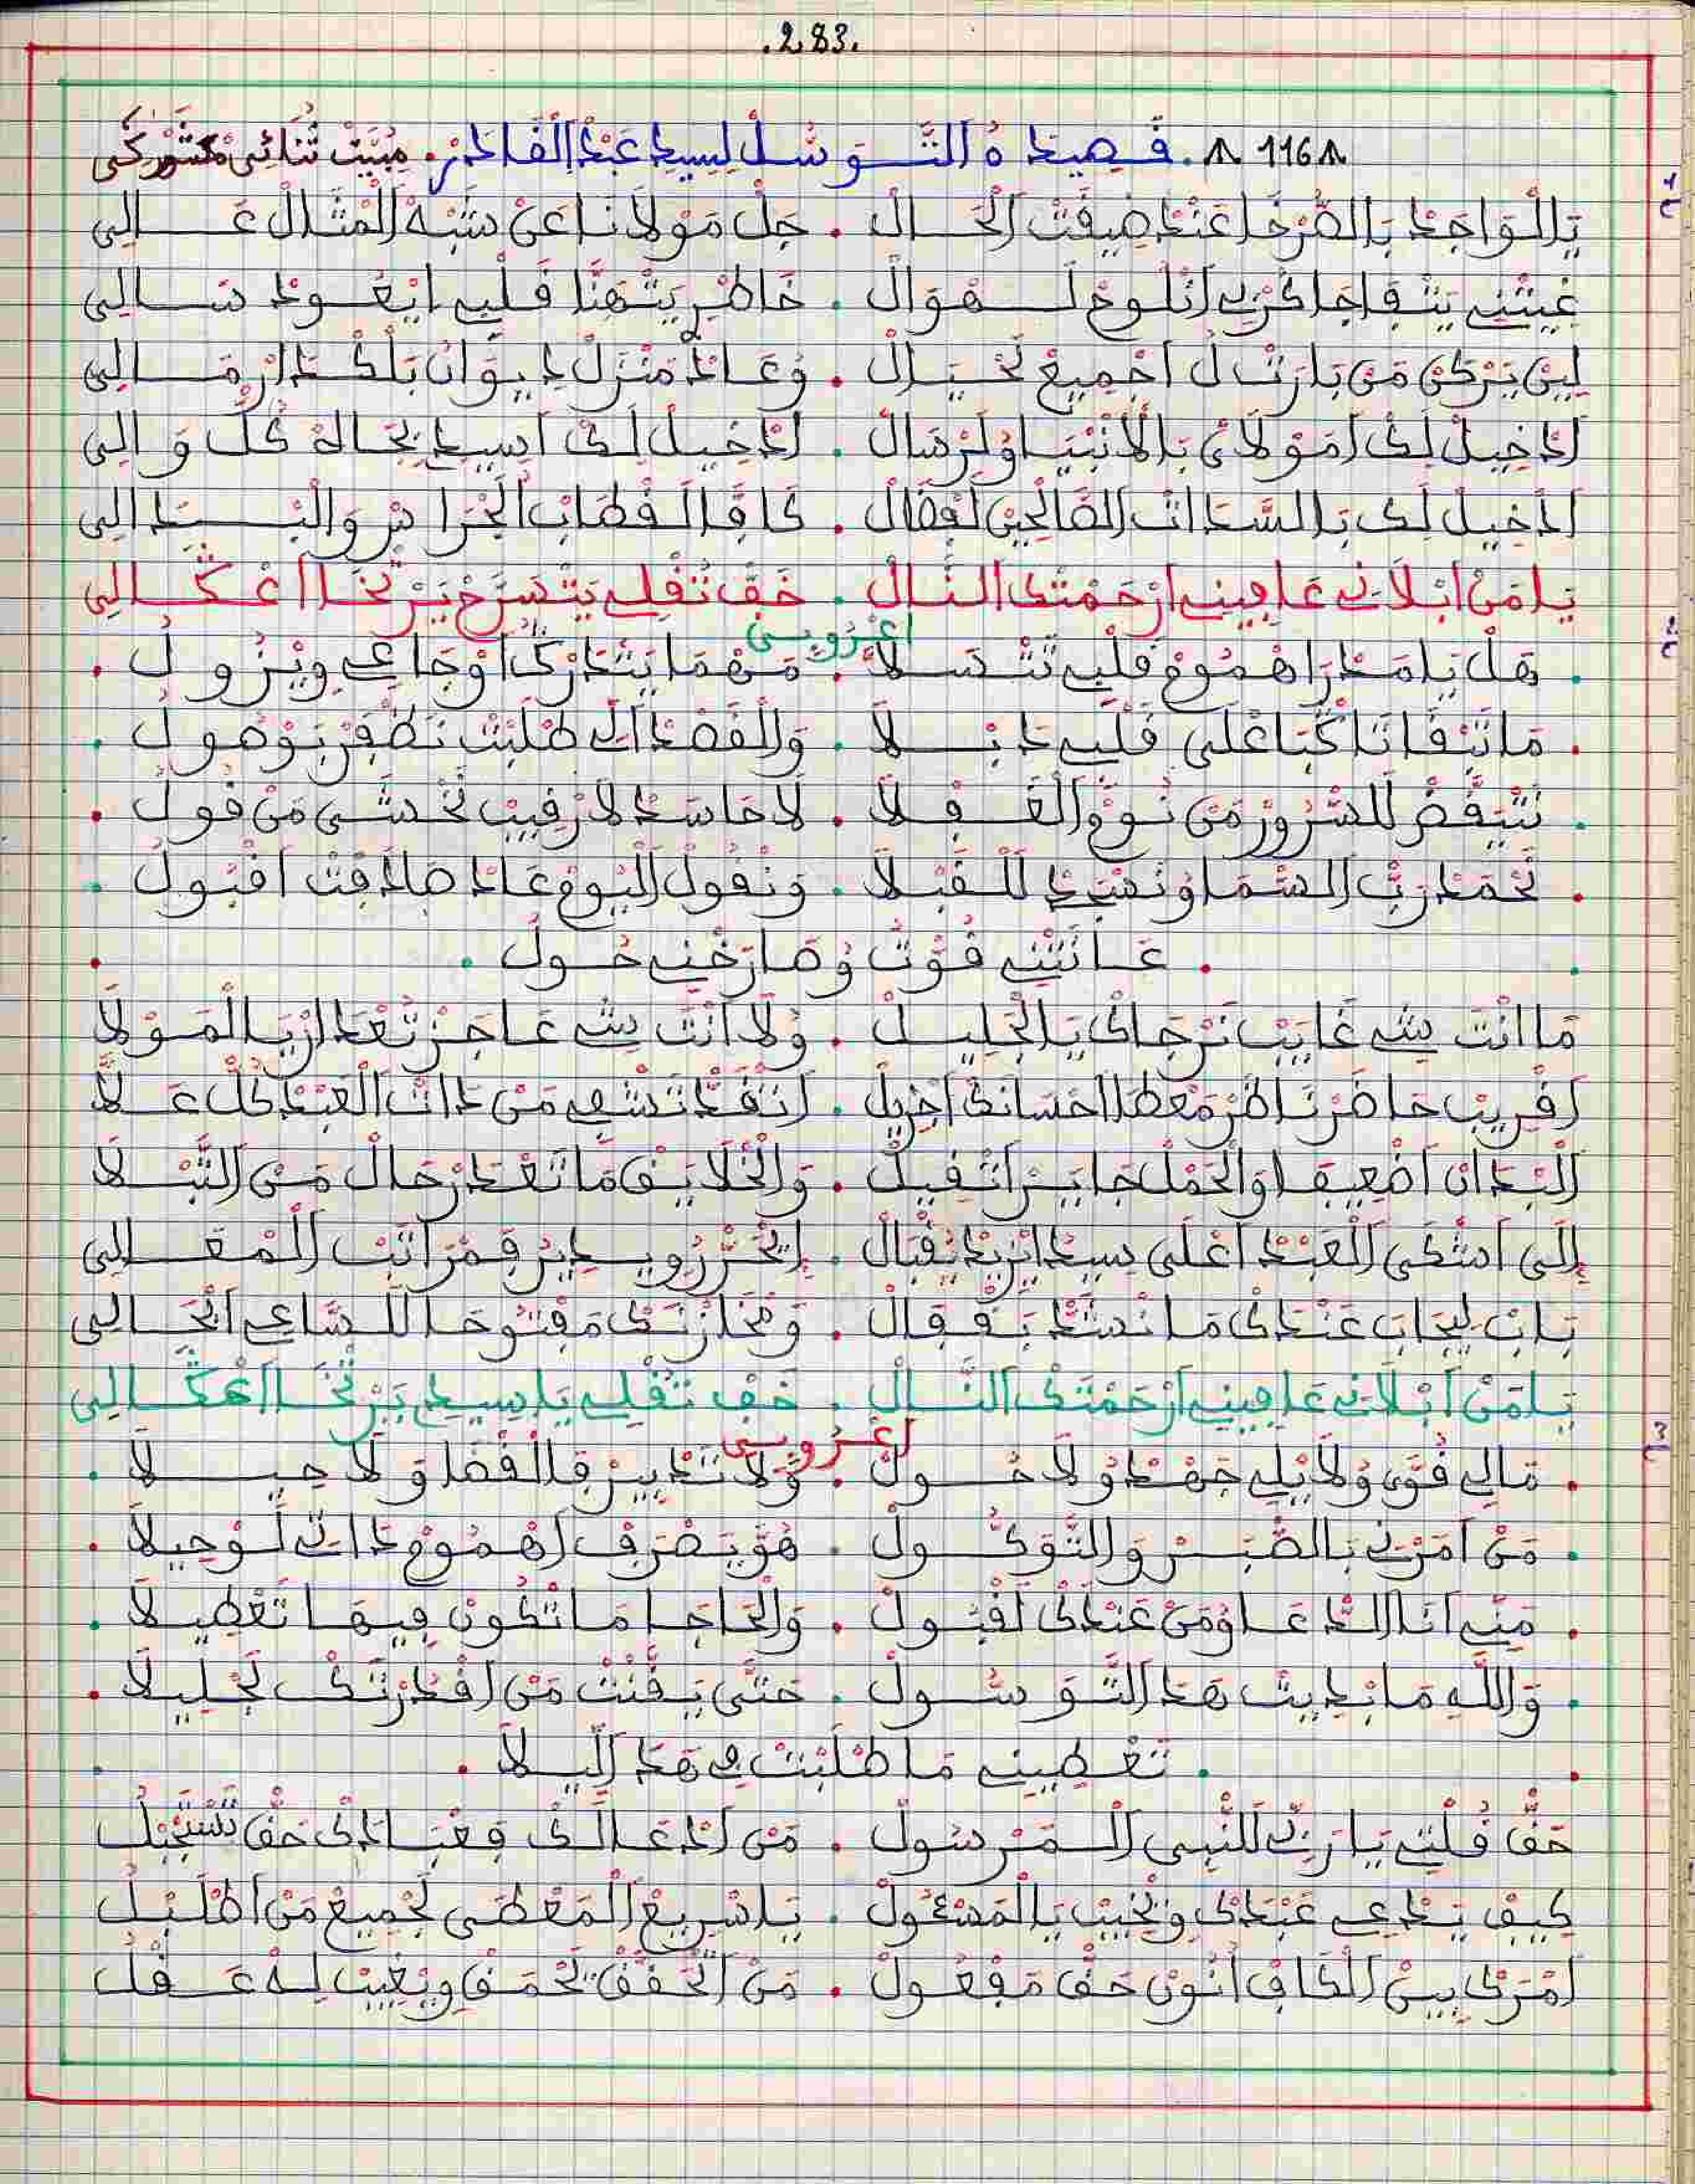 .283.
116 . قصيدة التَّوَسُّلْ لِسِيدِي عَبْدْ الْقَادَرْ. مْبَيَّتْ ثُنَائِي مَشَّرْكِي
يَالْوَاجَدْ بَالصَّرْخَا عَنْدْ ضِيقْتْ الْحَالْ . جَلّْ مَوْلَانَا عَنْ شَبْهْ الْمْثَالْ عَالِي
غِيثْنِي يَتْفَاجَا كَرْبِي أَنَا وْحْ لَهْوَالْ . خَاطْرِي يَتْهَنَّا قَلْبِي ايْعُودْ سَالِي
لِينْ نَرْكَنْ مَنْ يَا رَبّْ لْ اجْمِيعْ لَحْيَالْ . وْعَادْ مَنْزَلْ دِيوَانْ بَلْكْدَارْ مَالِي
ادْخِيلْ لَكْ أَمَوْلَايْ بَالْانْبْيَا وْلَرْسَالْ . ادْخِيلْ لَكْ اسِيدِي بْجَاهْ كُلّْ وَالِي
ادْخِيلْ لَكْ بَالسَّادَاتْ الصَّالْحِينْ لَفْضَالْ . كَافَّا الَقْطَابْ الْجْرَاسْ وَالْبْدَالِي
يَا مَنْ ابْلَانِي عَافِينِي ارْحَمْتَكْ النَّالْ . خَفّْ ثُقْلِي يَتْسَرَّحْ يَرْتْخَا اعْكَالِي
اعْرُوبِي
. هَلْ يَا مَدْرَا هْمُومْ قَلْبِي تَتْسَلَّا . مَهْمَا يَتْدَرْكُ اوْجَاعِي وِيْزُولُ .
. مَا تَبْقَا نَا كْبَا عْلَى قَلْبِي دَبْلَا . وَالْقَصْدْ الِّي طْلَبْتْ نَظْفَرْ بَوْصُولُ .
. نَتْيَقَّضْ لَلسُّرُورْ مَنْ نُومْ الْغَفْلَا . لَا حَاسَدْ لَا رْقِيبْ نَخْشَى مَنْ قُولُ .
. نَحْمَدْ رَبّْ السّْمَا وْنَسْجَدْ لَلْقَبْلَا . وَنْقُولْ الْيُومْ عَادْ صَادَفْتْ اقْبُولُ .
. عَانَتْنِي قُوّْتُ وْصَارَخْنِي حُولُ .
مَا انْتَ شِي غَايَبْ نَرْجَاكْ يَا الْجْلِيلْ . وْلَا انْتَ شِي عَاجَزْ تَعْدَارْ يَا الْمَوْلَا
اقْرِيبْ حَاضَرْ نَاظَرْ مَعْطَا احْسَانَكْ اجْزِيلْ . اتَنْقَدْ تَشْفِي مَنْ دَاتْ الْعَبْدْ كُلّْ عَلَّا
الْبْدَانْ اضْعِيفَا وَالْحَمْلْ جَايَرْ اثْقِيلْ . وَالْخْلَايَقْ مَا تَعْدَرْ حَالْ مَنْ اتَّبْلَا
إِلَى اشْكَى الْعَبْدْ اعْلَى سِيدُ ايْرِيدْ يَقْبَالْ . الْمْقَالِي
بَابْ لِيجَابْ عَنْدَكْ مَا نْسَدّْ بَقْفَالْ . وَخْزَايْنَكْ مَفْتُوحَا لَلسَّاعِي الْحَالِي
يَا مَنْ ابْلَانِي عَافِينِي ارْحَمْتَكْ النَّالْ . خَفّْ ثُقْلِي يَا سِيدِي يَرْتْخَا اعْكَالِي
اعْرُوبِي
. مَالِي قُوَّى وْلَا يْلِي جَهْدْ وْلَا حُولْ . وْلَا تَدْبِيرْ فَالْقْضَا وَلَا حِيلَا .
. مَنْ امَرْنِي بَالصّْبَرْ وَالتَّوَكُّولْ . هُوَّ يَصْرَفْ اهْمُومْ دَاتِي لَوْحِيلَا .
. مَنِّي أَنَا الدّْعَا وْمَنْ عَنْدَكْ لَقْبُولْ . وَالْحَاجَا مَا تْكُونْ فِيهَا تَعْطِيلَا .
. وَاللَّهِ مَا بْدِيتْ هَدَا التَّوَسُّولْ . حَتَّى يَقَّنْتْ مَنْ اقْدَرْتَكْ لَجْلِيلَا .
. تَعْطِينِي مَا طْلَبْتْ فِي هَدَا اللِّيلَا .
حَقّْ قُلْتِي يَا رَبِّي لَلنّْبِي الْمَرْسُولْ . مَنْ ادْعَا لَكْ فِعْبَادَكْ حَقّْ تَسْتَجَبْلُ
كِيفْ يَدْعِي عَبْدَكْ وِيْخِيبْ يَا الْمَسْئُولْ . يَا سْرِيعْ الْمَعْطَى لَجْمِيعْ مَنْ اطْلَبْلُ
امْرَكْ بِينْ الْكَافْ انُونْ حَقّْ مَفْعُولْ . مَنْ اتْحَقَّقْ يَحْمَقْ وِيْغِيبْ لِهْ عَقْلُ